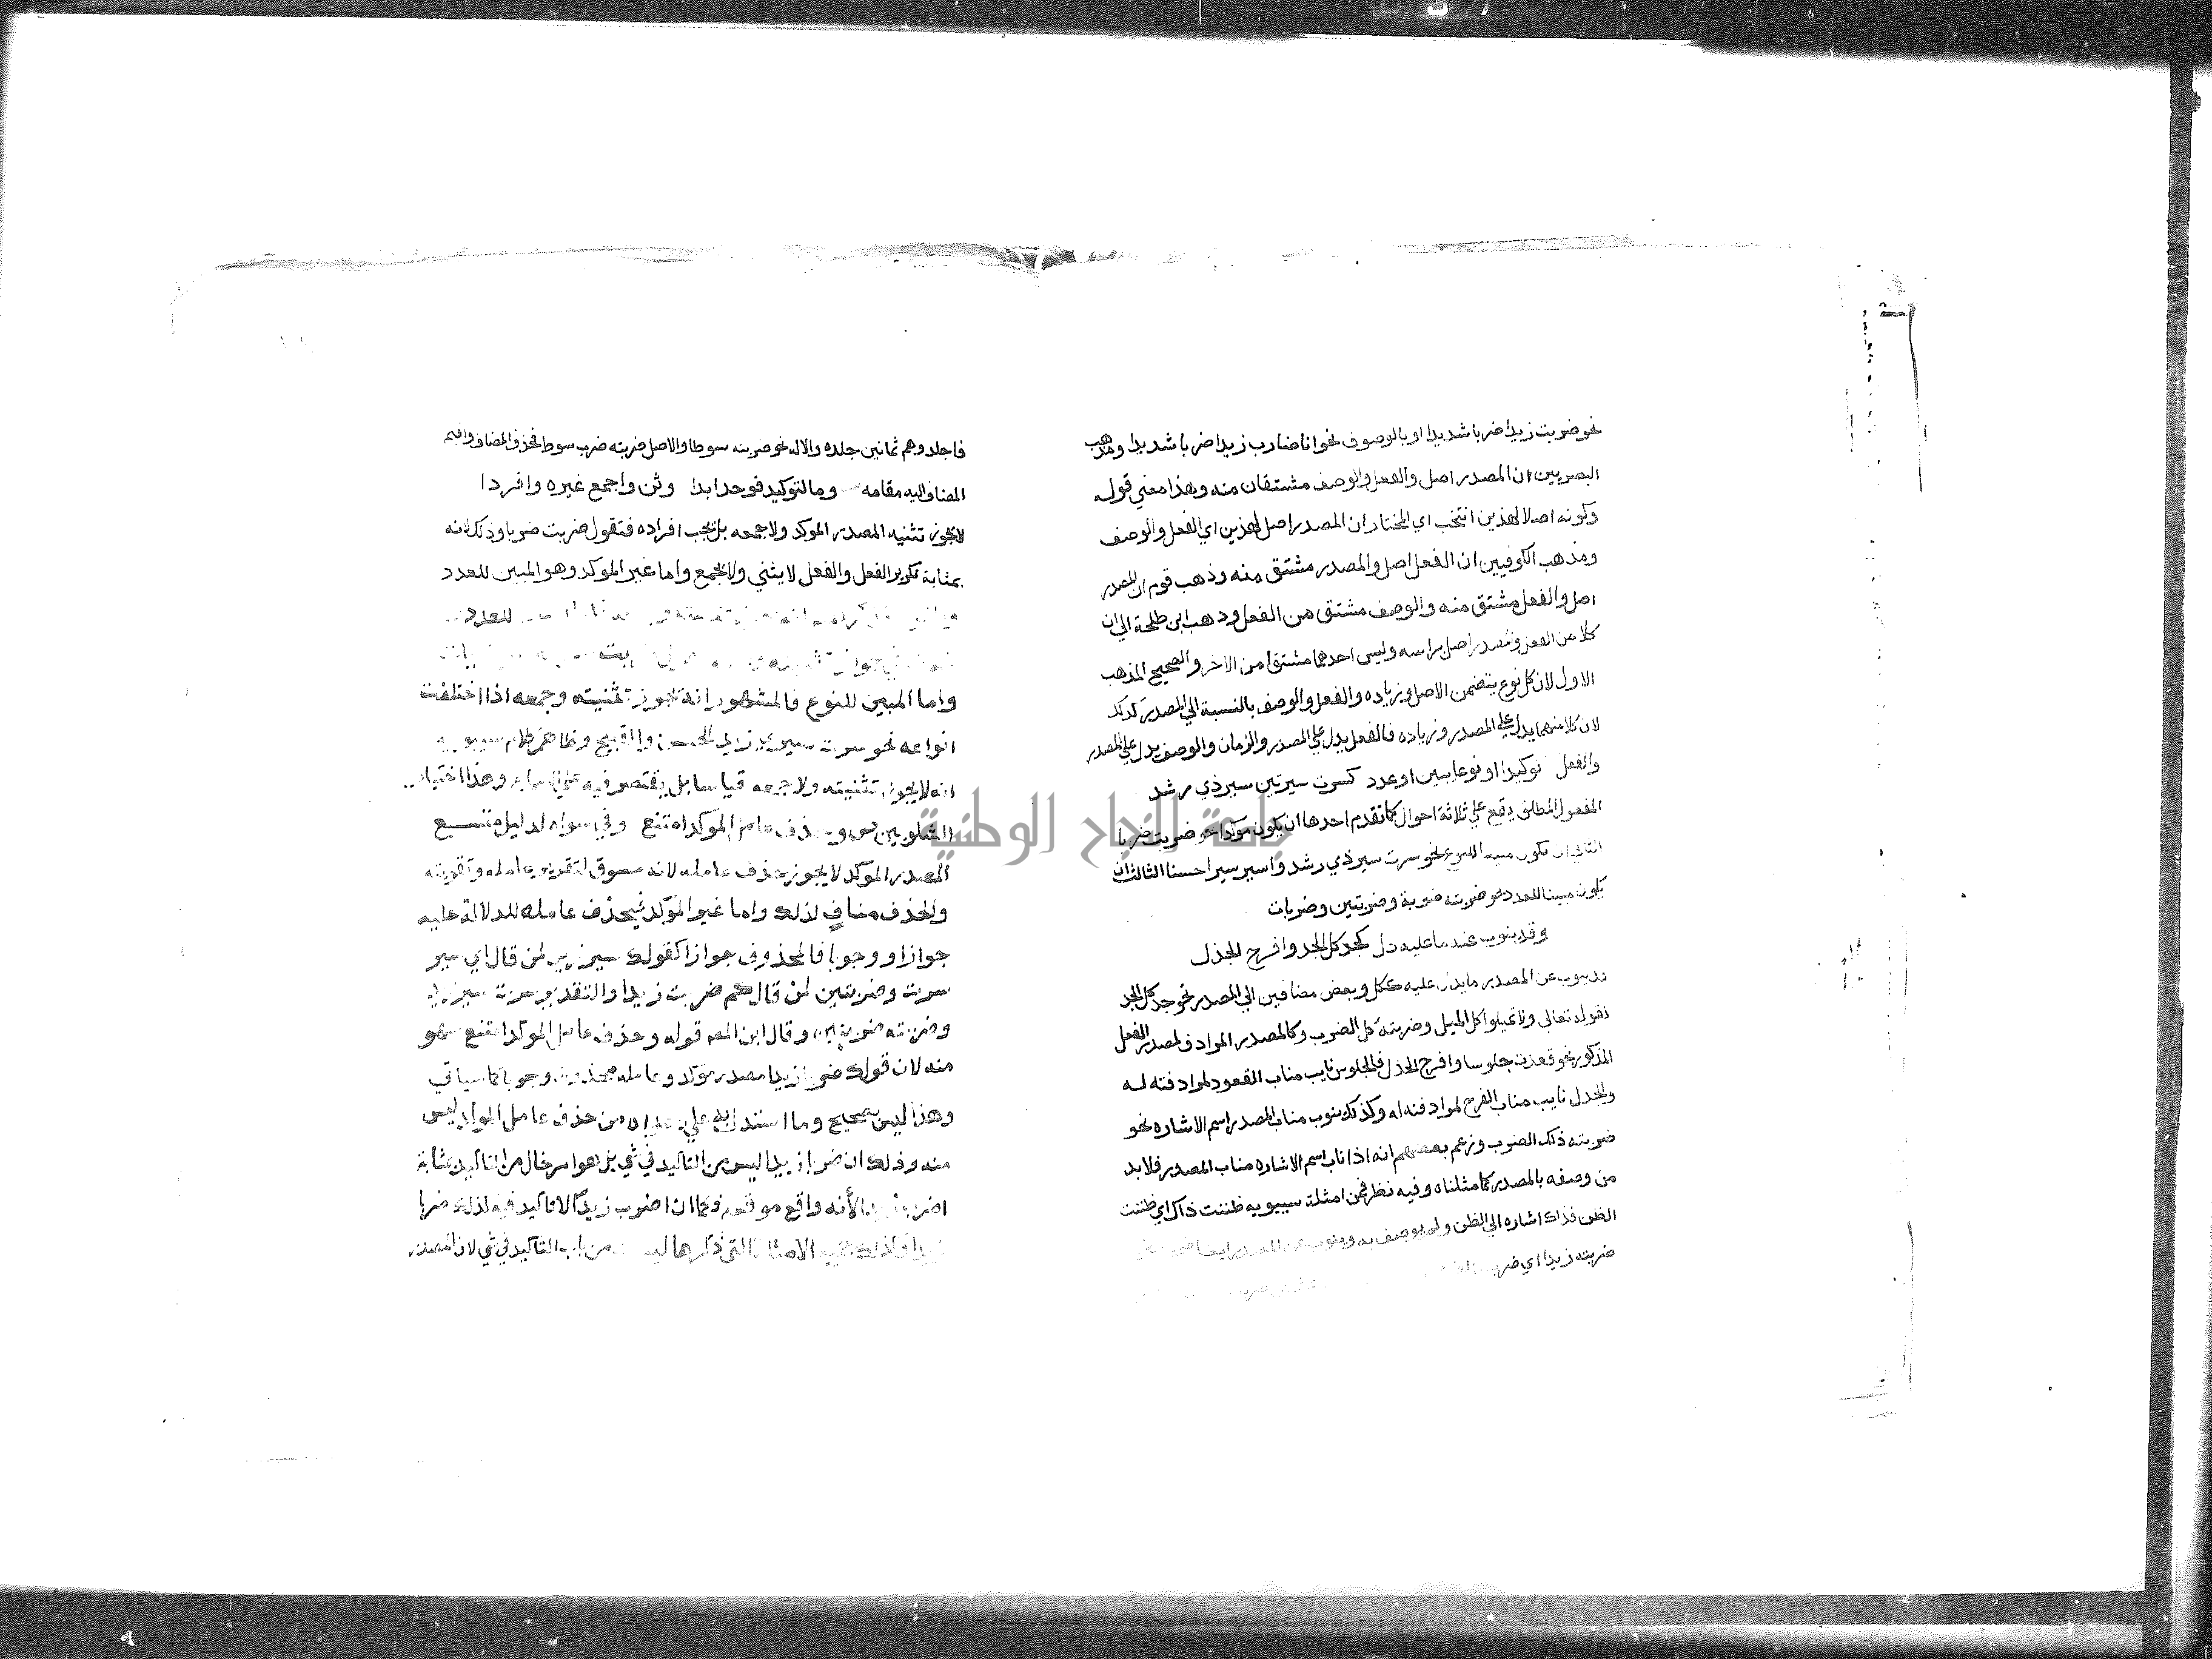 نحو ضربت زيدا ضربا شديدا او بالوصوف نحو انا ضارب زيدا ضربا شديدا ومذهب
البصريين ان المصدر اصل والفعل والوصف مشتقان منه وهذا معني قوله
وكونه اصلا لهذين انتخب اي المختار ان المصدر اصل لهذين اي الفعل والوصف
ومذهب الكوفيين ان الفعل اصل والمصدر مشتق منه وذهب قوم ان المصدر
اصل والفعل مشتق منه والوصف مشتق من الفعل وذهب ابن طلحة الي ان
كلا من الفعل والمصدر اصل براسه وليس احدهما مشتقا من الاخر والصحيح المذهب
الاول لان كل نوع يتضمن الاصل وزياده والفعل والوصف بالنسبة الي المصدر كذلك
لان كلا منهما يدل علي المصدر وزياده فالفعل يدل علي المصدر والزمان والوصف يدل علي المصدر
والفعل توكيدا او نوعا يبين او عدد كسرت سيرتين سير ذي رشد
المفعول المطلق يقع علي ثلاثة احوال كما تقدم احدها ان يكون موكدا نحو ضربت ضربا
الثاني ان يكون مبينا للنوع نحو سرت سير ذي رشد واسير سيرا حسنا الثالث ان
يكون مبينا للعدد نحو ضربته ضربة وضربتين وضربات
وقد ينوب عنه ما عليه دل كجد كل الجد وافرح الجذل
قد ينوب عن المصدر ما يدل عليه ككل وبعض مضافين الي المصدر نحو جد كل الجد
نقوله تعالي ولا تميلوا كل الميل وضربته كل الضرب وكالمصدر المرادف لمصدر الفعل
المذكور نحو قعدت جلوسا وافرح الجذل فالجلوس نايب مناب القعود لمرادفته له
والجذل نايب مناب الفرح لمرادفته له وكذلك ينوب مناب المصدر اسم الاشاره نحو
ضربته ذلك الضرب وزعم بعضهم انه اذا ناب اسم الاشاره مناب المصدر فلا بد
من وصفه بالمصدر كما مثلناه وفيه نظر فمن امثلة سيبويه ظننت ذاك اي ظننت
الظن فذاك اشاره الي الظن ولم يوصف به وينوب عن المصدر ايضا ضميره
ضربته زيدا اي ضربت
فاجلدوهم ثمانين جلده والاله نحو ضربته سوطا والاصل ضربته ضرب سوط فحذف المضاف واقيم
المضاف اليه مقامه وما لتوكيد فوحد ابدا وثن واجمع غيره وافردا
لا يجوز تثنيه المصدر الموكد ولا جمعه بل يجب افراده فتقول ضربت ضربا وذلك لانه
بمثابة تكرير الفعل والفعل لا يثني ولا يجمع واما غير الموكد وهو المبين للعدد
للعدد
جواز تثنيته
واما المبين للنوع فالمشهور انه يجوز تثنيته وجمعه اذا اختلفت
انواعه نحو سرت سيري زيد الحسن والقبيح وظاهر كلام سيبويه
انه لا يجوز تثنيته ولا جمعه قياسا بل يقتصر فيه علي السماع وهذا اختيار
الشلوبين وحذف عامل الموكد امتنع وفي سواه لدليل متسع
المصدر الموكد لا يجوز حذف عامله لانه مسوق لتقرير عامله وتقويته
والحذف مناف لذلك واما غير الموكد فيحذف عامله للدلالة عليه
جوازا ووجوبا فالمحذوف جوازا كقولك سير زيد لمن قال اي سير
سرت وضربتين لمن قال كم ضربت زيدا والتقدير سرت سير زيد
وضربته ضربتين وقال ابن المص قوله وحذف عامل الموكد امتنع سهو
منه لان قولك ضربا زيدا مصدر موكد وعامله محذوف وجوبا كما سياتي
وهذا ليس بصحيح وما استدل به علي دعواه من حذف عامل الموكد ليس
منه وذلك ان ضربا زيدا ليس من التاكيد في شي بل هو امر خال من التاكيد بمثابة
اضرب زيدا لأنه واقع موقعه وكما ان اضرب زيدا لا تاكيد فيه لذلك ضربا
زيدا وكذلك جميع الامثلة التي ذكرها ليست من باب التاكيد في شي لان المصدر
جامعة النجاح الوطنية